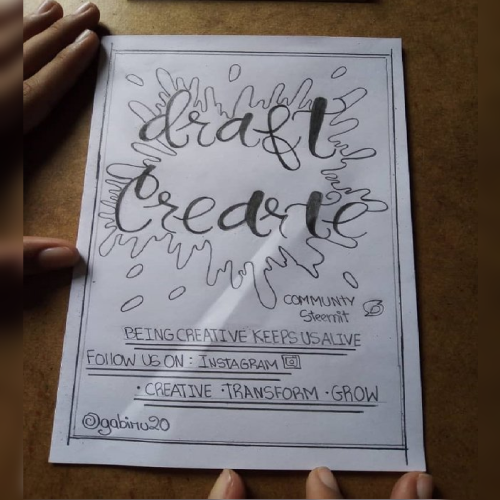 draft
Crearte
COMMUNITY
Steemit
BEING CREATIVE KEEPS US ALIVE
FOLLOW US ON : INSTAGRAM
· CREATIVE · TRANSFORM · GROW
@gabiru20